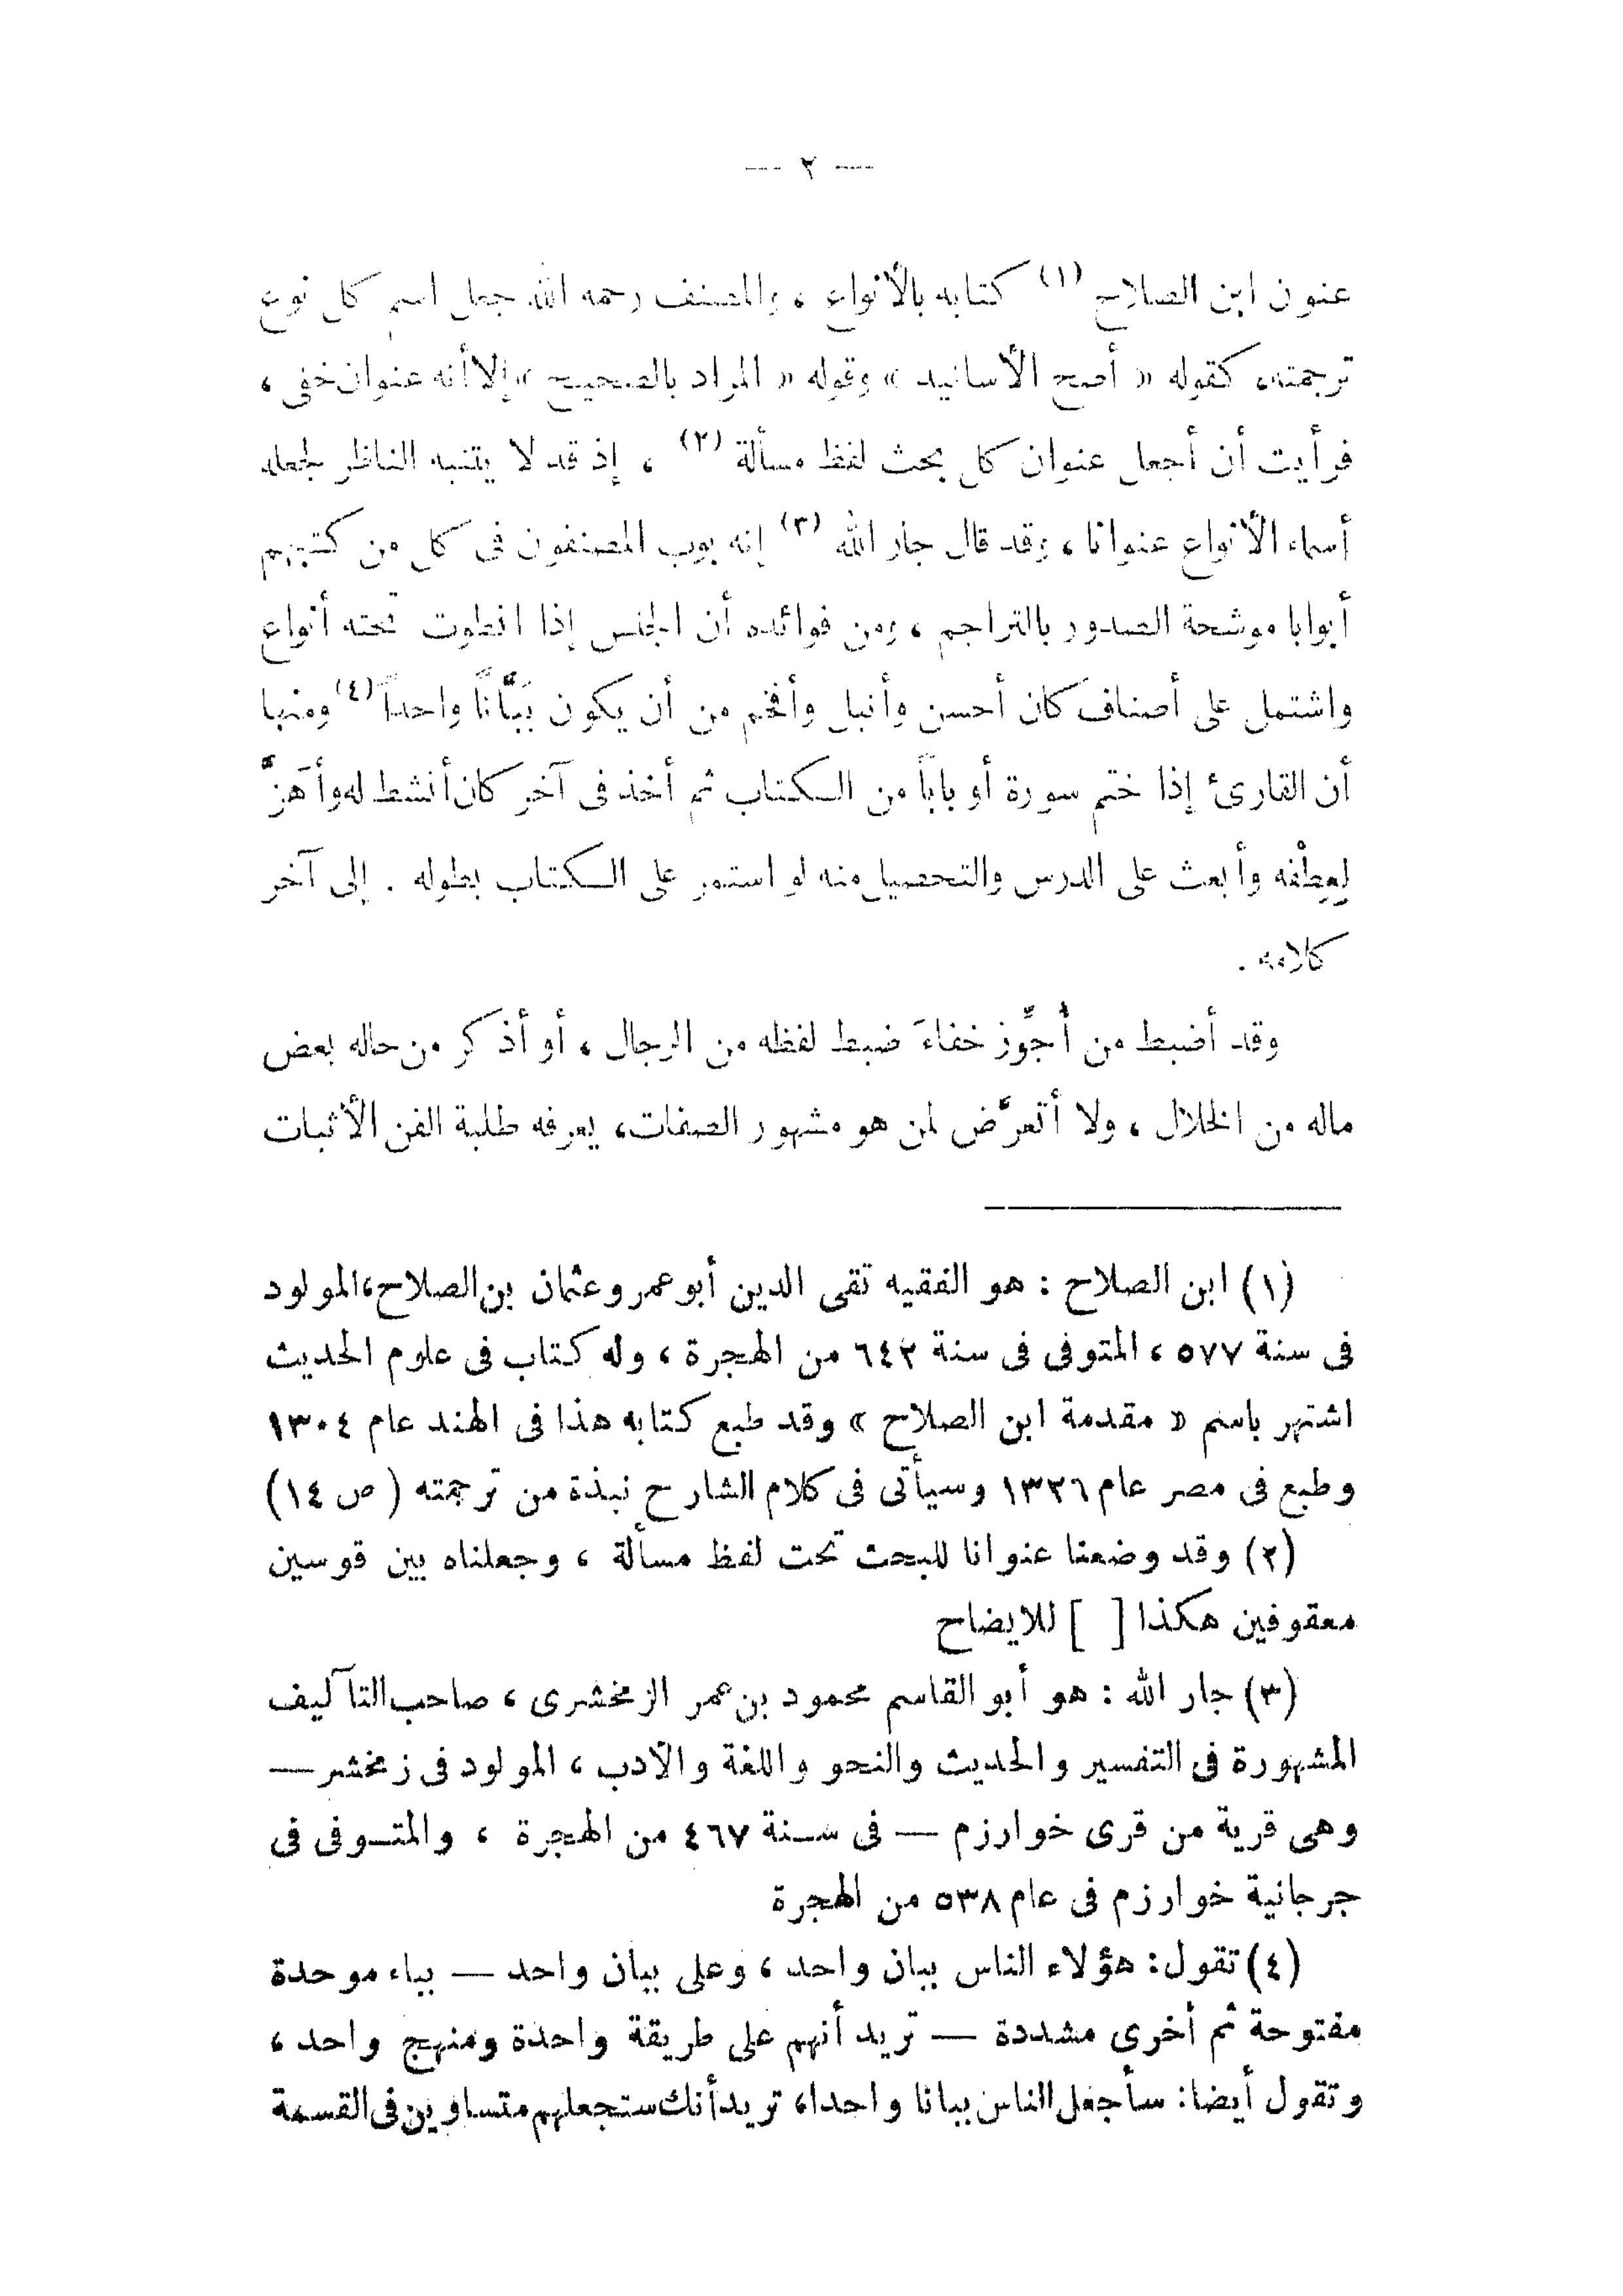 — ٢ —
عنون ابن الصلاح (١) كتابه بالأنواع ، والمصنف رحمه الله جعل اسم كل نوع
ترجمته، كقوله « أصح الأسانيد » وقوله « المراد بالصحيح » إلا أنه عنوان خفى ،
فرأيت أن أجعل عنوان كل بحث لفظ مسألة (٢) ، إذ قد لا يتنبه الناظر لجعله
أسماء الأنواع عنوانا ، وقد قال جار الله (٣) إنه بوب المصنفون فى كل من كتبهم
أبوابا موشحة الصدور بالتراجم ، ومن فوائده أن الجنس إذا انطوت تحته أنواع
واشتمل على أصناف كان أحسن وأنبل وأفخم من أن يكون بَبَّانًا واحداً (٤) ومنها
أن القارئ إذا ختم سورة أو باباً من الكتاب ثم أخذ فى آخر كان أنشط له وأهَزَّ
لِعِطْفه وأبعث على الدرس والتحصيل منه لو استمر على الكتاب بطوله . إلى آخر
كلامه .
وقد أضبط من أُجوِّز خفاءَ ضبط لفظه من الرجال ، أو أذكر من حاله بعض
ماله من الخلال ، ولا أتعرَّض لمن هو مشهور الصفات، يعرفه طلبة الفن الأثبات
(١) ابن الصلاح : هو الفقيه تقى الدين أبو عمرو عثمان بن الصلاح، المولود
فى سنة ٥٧٧ ، المتوفى فى سنة ٦٤٢ من الهجرة ، وله كتاب فى علوم الحديث
اشتهر باسم « مقدمة ابن الصلاح » وقد طبع كتابه هذا فى الهند عام ١٣٠٤
وطبع فى مصر عام ١٣٢٦ وسيأتى فى كلام الشارح نبذة من ترجمته ( ص ١٤ )
(٢) وقد وضعنا عنوانا للبحث تحت لفظ مسألة ، وجعلناه بين قوسين
معقوفين هكذا [ ] للايضاح
(٣) جار الله : هو أبو القاسم محمود بن عمر الزمخشرى ، صاحب التآليف
المشهورة فى التفسير والحديث والنحو واللغة والأدب ، المولود فى زمخشر —
وهى قرية من قرى خوارزم — فى سنة ٤٦٧ من الهجرة ، والمتوفى فى
جرجانية خوارزم فى عام ٥٣٨ من الهجرة
(٤) تقول: هؤلاء الناس ببان واحد ، وعلى ببان واحد — بباء موحدة
مفتوحة ثم أخرى مشددة — تريد أنهم على طريقة واحدة ومنهج واحد ،
وتقول أيضا: سأجعل الناس ببانا واحدا، تريد أنك ستجعلهم متساوين فى القسمة